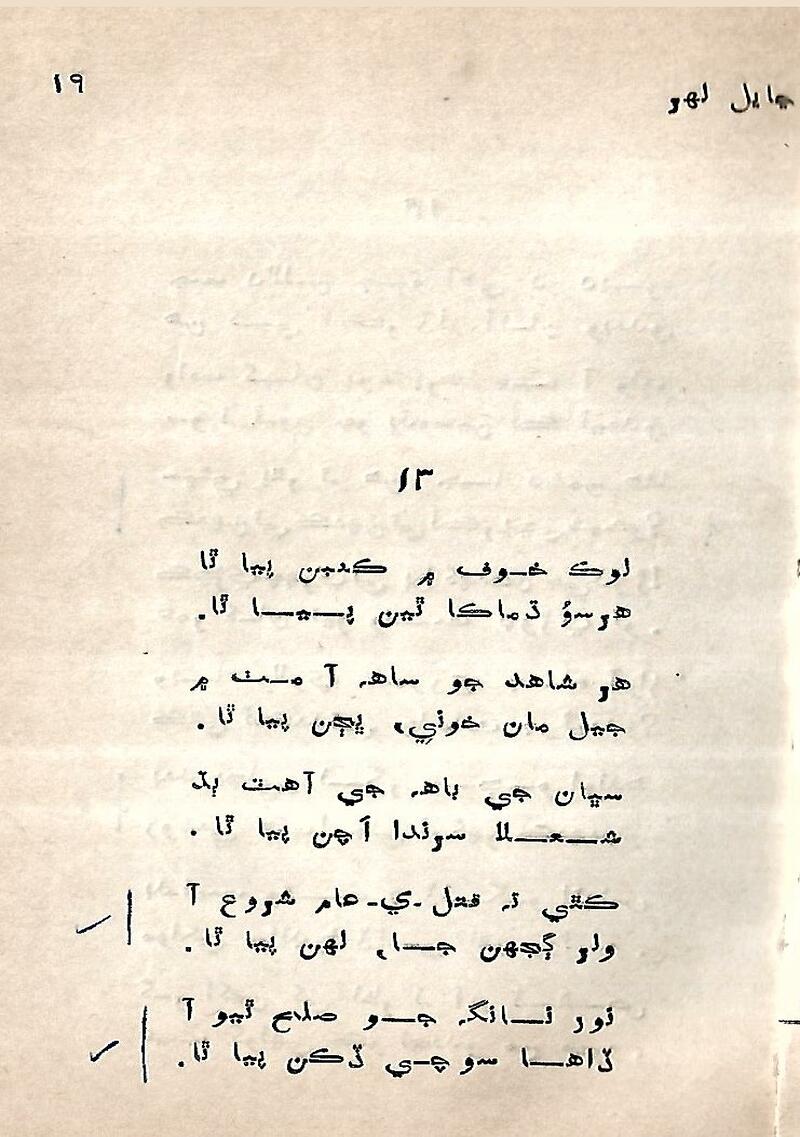 ڇايل لهر
۱۹
۱۳
لوڪ خوف ۾ ڪنبن پيا ٿا
هرسوُ ڌماڪا ٿين پيا ٿا.
هر شاهد جو ساهہ آ مٺ ۾
جيل مان خوني، ڀڄن پيا ٿا.
سڀان جي باهہ جي آهٽ ٻڌ
شعلا سرندا اَچن پيا ٿا.
ڪٿي تہ قتل ـ ي ـ عام شروع آ
ولر ڳجهن جا، لهن پيا ٿا.
نور نانگہ جو صلح ٿيو آ
ڏاها سوچي ڏڪن پيا ٿا.